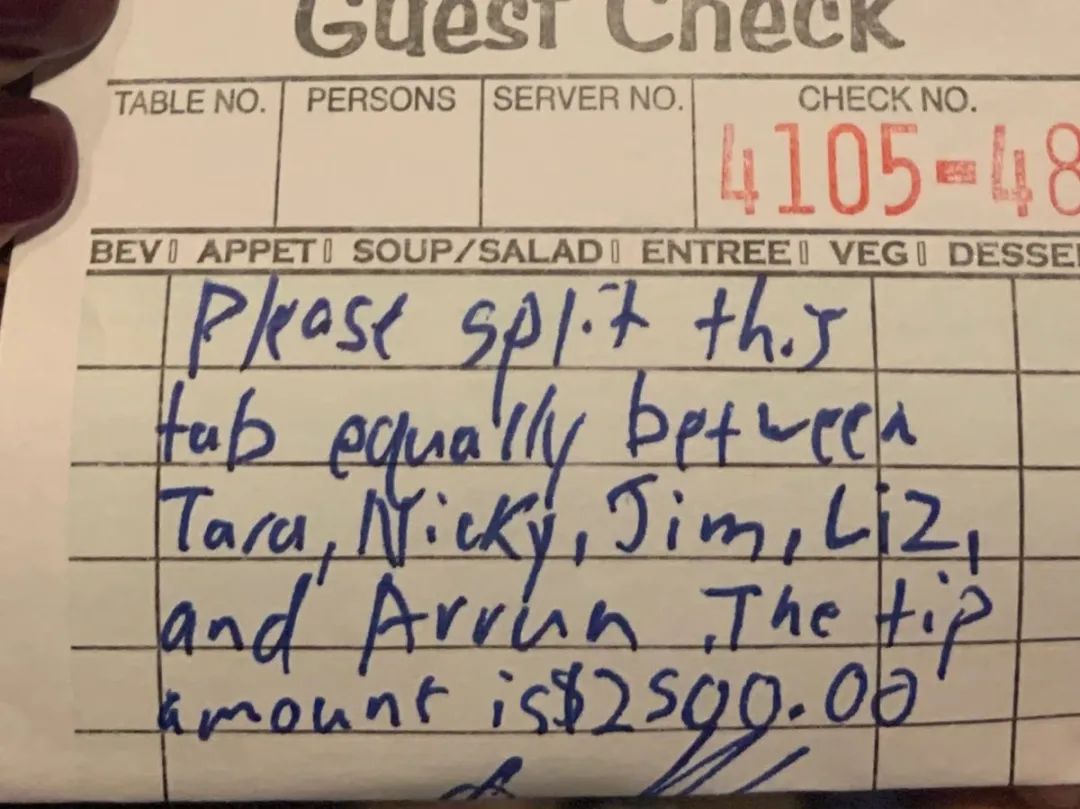 Guest Check
TABLE NO. PERSONS SERVER NO. CHECK NO.
4105-48
BEV APPET SOUP/SALAD ENTREE VEG DESSE
Please split this
tab equally between
Tara, Nicky, Jim, Liz,
and Arrun. The tip
amount is $2500.00